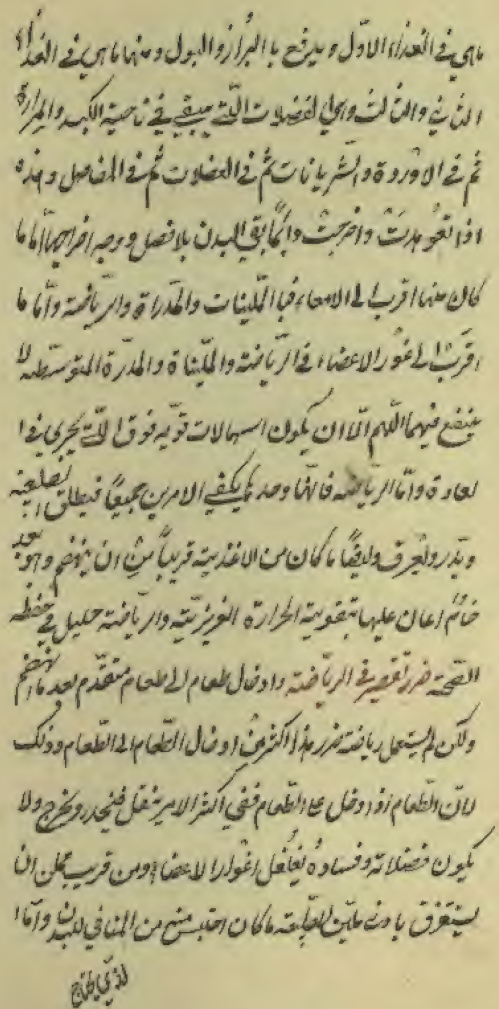 ماهي في الغذاء الاوّل ويدفع باالبراز والبول ومنها ماهي في الغذاء
الثاني والثالث وهي الفضلات الّتي تبقى في ناحية الكبد والمرارة
ثم في الاوردة والشّريانات ثمّ في العضلات ثمّ في المفاصل وهذه
اذا تعوهدت واخرجت دائماً بقي البدن بلا فضل ووجه اخراجهما اماما
كان منها اقرب الى الامعاء فبا الملّينات والمدراة والرّياضة وامّا ما
اقرب الى غور الاعضاء فى الرّياضة والمليّناة والمدّرة المتوسّطه لا
ينفع فيهما اللّهم الّا ان يكون اسهالات قويّه فوق الّتي يجرى في ا
لعادة وامّا الرّياضه فانّها وحدها يكفي الامرين جميعاً فيطلق الطبيعة
ويدّر ويعرق وايضاً ما كان من الاغذيته قريباً من ان ينهضم وهو بعد
خام اعان عليها بتقوية الحرارة الغريزيّة والرّياضة جليل في حفظ
الصّحة ضرر تقصير في الرّياضته وادخال طعام الى طعام متقدّم بعد ما انهضم
ولكن لم يستعمل رياضته ضرر هذا اكثر من ادخال الطّعام الى الطّعام وذلك
لانّ الطّعام اذا دخل على الطّعام ففي اكثر الامر يثقل فينحدر ويخرج ولا
يكون فضلاته وفساده يغلغل اغوار الاعضاء ومن قريب يمكن ان
يستفرق بادنى مليّن للطّبيعته ماكان احتبس منع من المنافي للبدن وامّا ا
لذي يحتاج